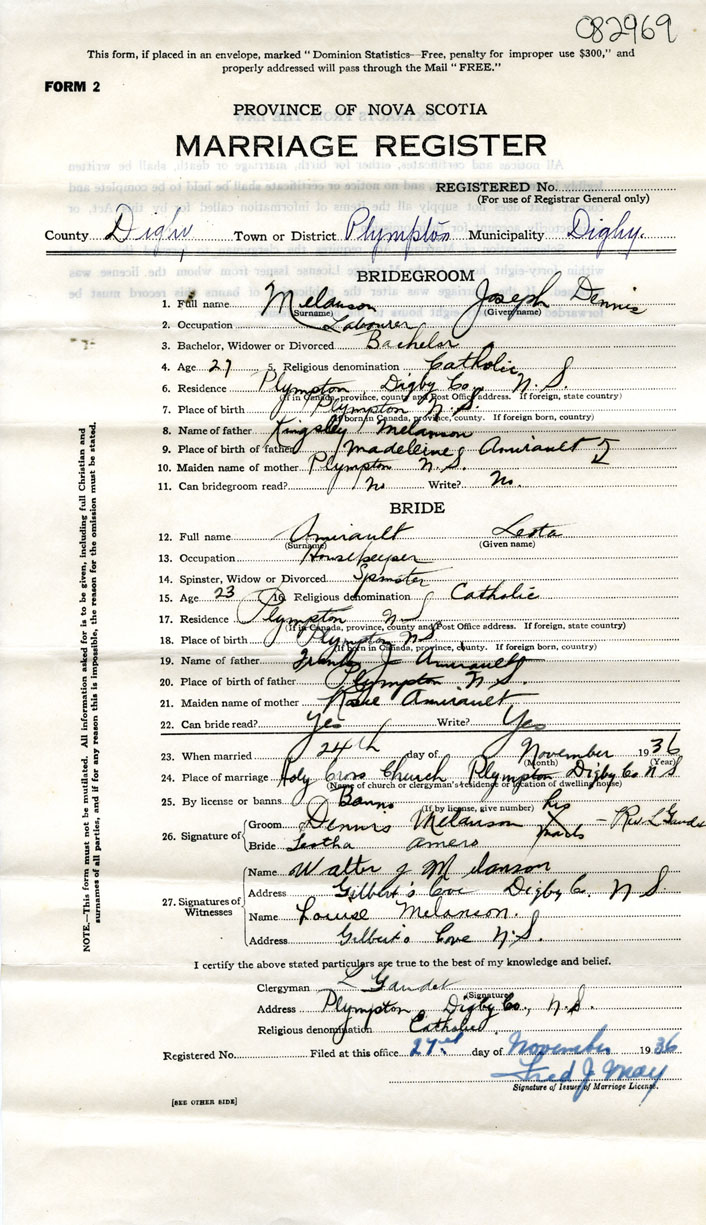 082969
This form, if placed in an envelope, marked "Dominion Statistics—Free, penalty for improper use $300," and
properly addressed will pass through the Mail "FREE."
FORM 2
PROVINCE OF NOVA SCOTIA
MARRIAGE REGISTER
REGISTERED No.
(For use of Registrar General only)
County Digby Town or District Plympton Municipality Digby.
BRIDEGROOM
1. Full name Melanson Joseph Dennis
(Surname) (Given name)
2. Occupation Labourer
3. Bachelor, Widower or Divorced Bachelor
4. Age 27 5. Religious denomination Catholic
6. Residence Plympton Digby Co. N.S.
(If in Canada, province, county and Post Office address. If foreign, state country)
7. Place of birth Plympton N.S.
(If born in Canada, province, county. If foreign born, country)
8. Name of father Kingsley Melanson
9. Place of birth of father Madeleine Amirault
10. Maiden name of mother Plympton N.S.
11. Can bridegroom read? No Write? No.
BRIDE
12. Full name Amirault Leota
(Surname) (Given name)
13. Occupation Housekeeper
14. Spinster, Widow or Divorced Spinster
15. Age 23 16. Religious denomination Catholic
17. Residence Plympton N.S
(If in Canada, province, county and Post Office address. If foreign, state country)
18. Place of birth Plympton N.S
(If born in Canada, province, county. If foreign born, country)
19. Name of father J Amirault
20. Place of birth of father Plympton N.S.
21. Maiden name of mother Rosie Amirault
22. Can bride read? Yes Write? Yes
23. When married 24th day of November 1936
(Month) (Year)
24. Place of marriage Holy Cross Church Plympton Digby Co N S
(Name of church or clergyman's residence or location of dwelling house)
25. By license or banns Banns
(If by license, give number)
26. Signature of Groom Dennis Melanson his X mark - Rev. L Gaudet
Bride Leotha amero
27. Signatures of Witnesses
Name Walter J Melanson
Address Gilbert's Cove Digby Co. N S.
Name Louise Melanson.
Address Gilbert's Cove N.S.
I certify the above stated particulars are true to the best of my knowledge and belief.
Clergyman L Gaudet
(Signature)
Address Plympton Digby Co., N.S.
Religious denomination Catholic
Registered No. Filed at this office 27 day of November 1936
Fred J May
Signature of Issuer of Marriage License.
[SEE OTHER SIDE]
NOTE.—This form must not be mutilated. All information asked for is to be given, including full Christian and
surnames of all parties, and if for any reason this is impossible, the reason for the omission must be stated.